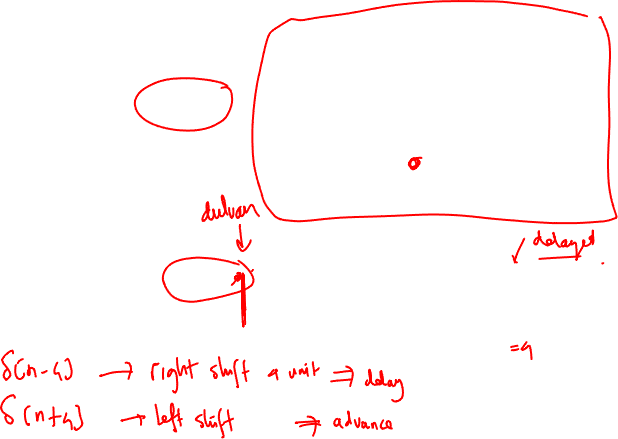 delayed
=4
δ(n-4) → right shift 4 unit ⇒ delay
δ(n+4) → left shift ⇒ advance